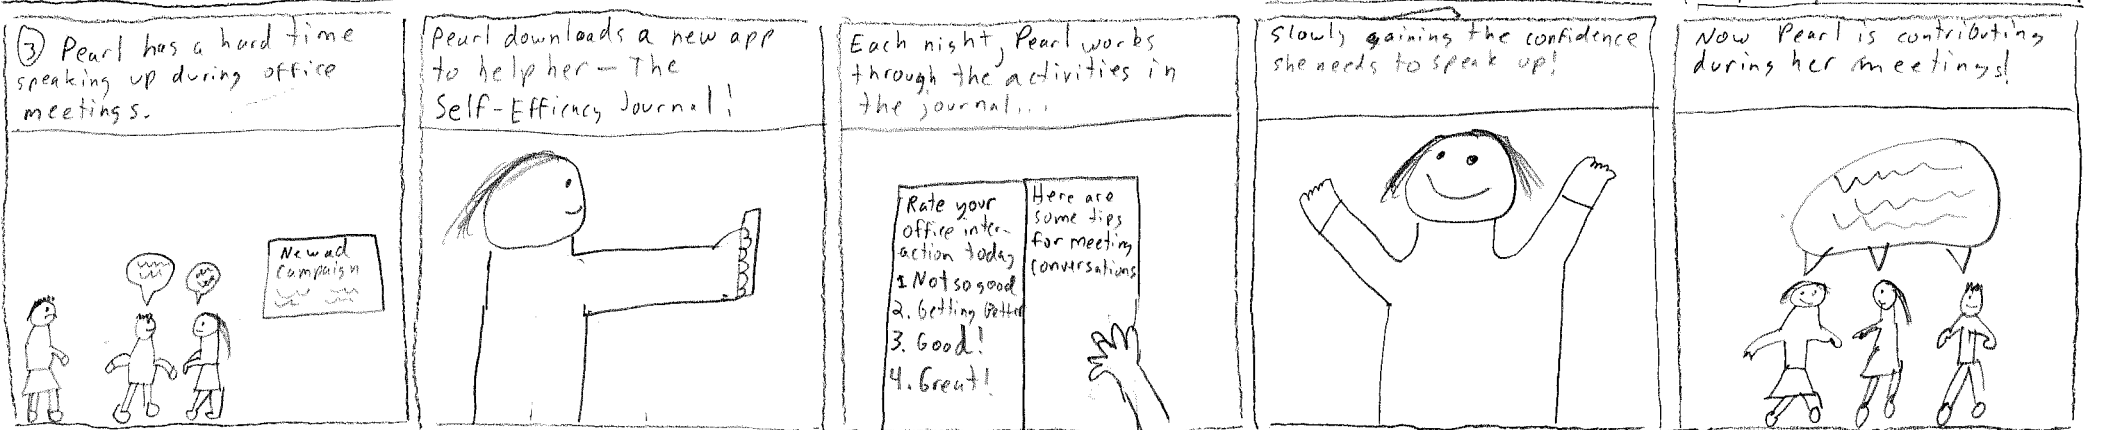 ③ Pearl has a hard time
speaking up during office
meetings.
New ad
campaign
Pearl downloads a new app
to help her - The
Self-Efficacy Journal!
Each night, Pearl works
through the activities in
the journal...
Rate your
office inter-
action today
1 Not so good
2. Getting Better
3. Good!
4. Great!
Here are
some tips
for meeting
conversations
Slowly gaining the confidence
she needs to speak up!
Now Pearl is contributing
during her meetings!